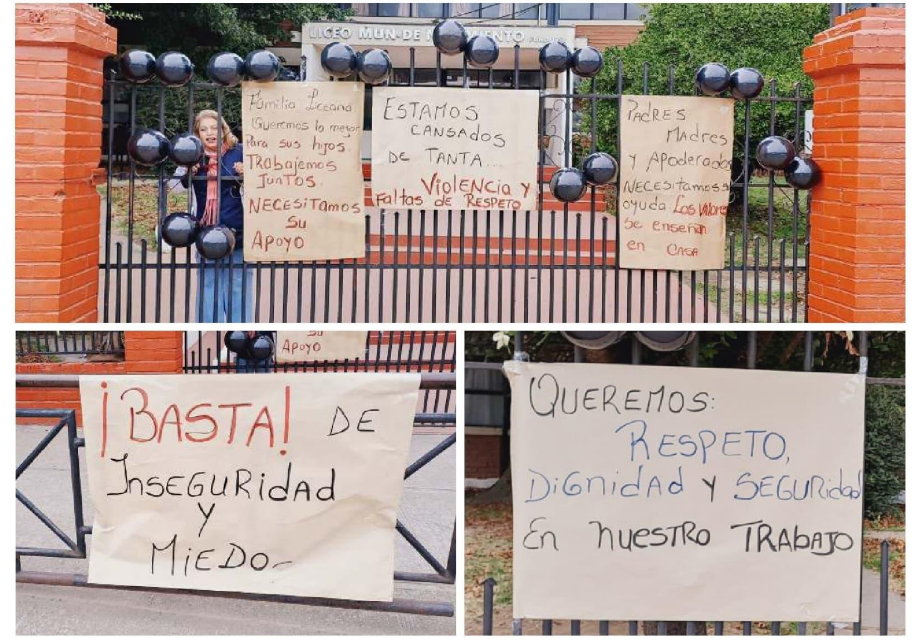 LICEO MUN. DE NACIMIENTO
Familia Liceana
Queremos lo mejor
Para sus hijos.
Trabajemos
Juntos.
NECESITAMOS
Su
Apoyo
ESTAMOS
CANSADOS
DE TANTA...
Violencia y
Faltas de Respeto
PADRES
Madres
y Apoderados
NECESITAMOS
ayuda Los Valores
Se enseñan
en Casa
Su
Apoyo
¡BASTA! DE
INSEGURIDAD
Y
MIEDO
QUEREMOS:
RESPETO,
DIGNIDAD Y SEGURIDAD
En nuestro TRABAJO